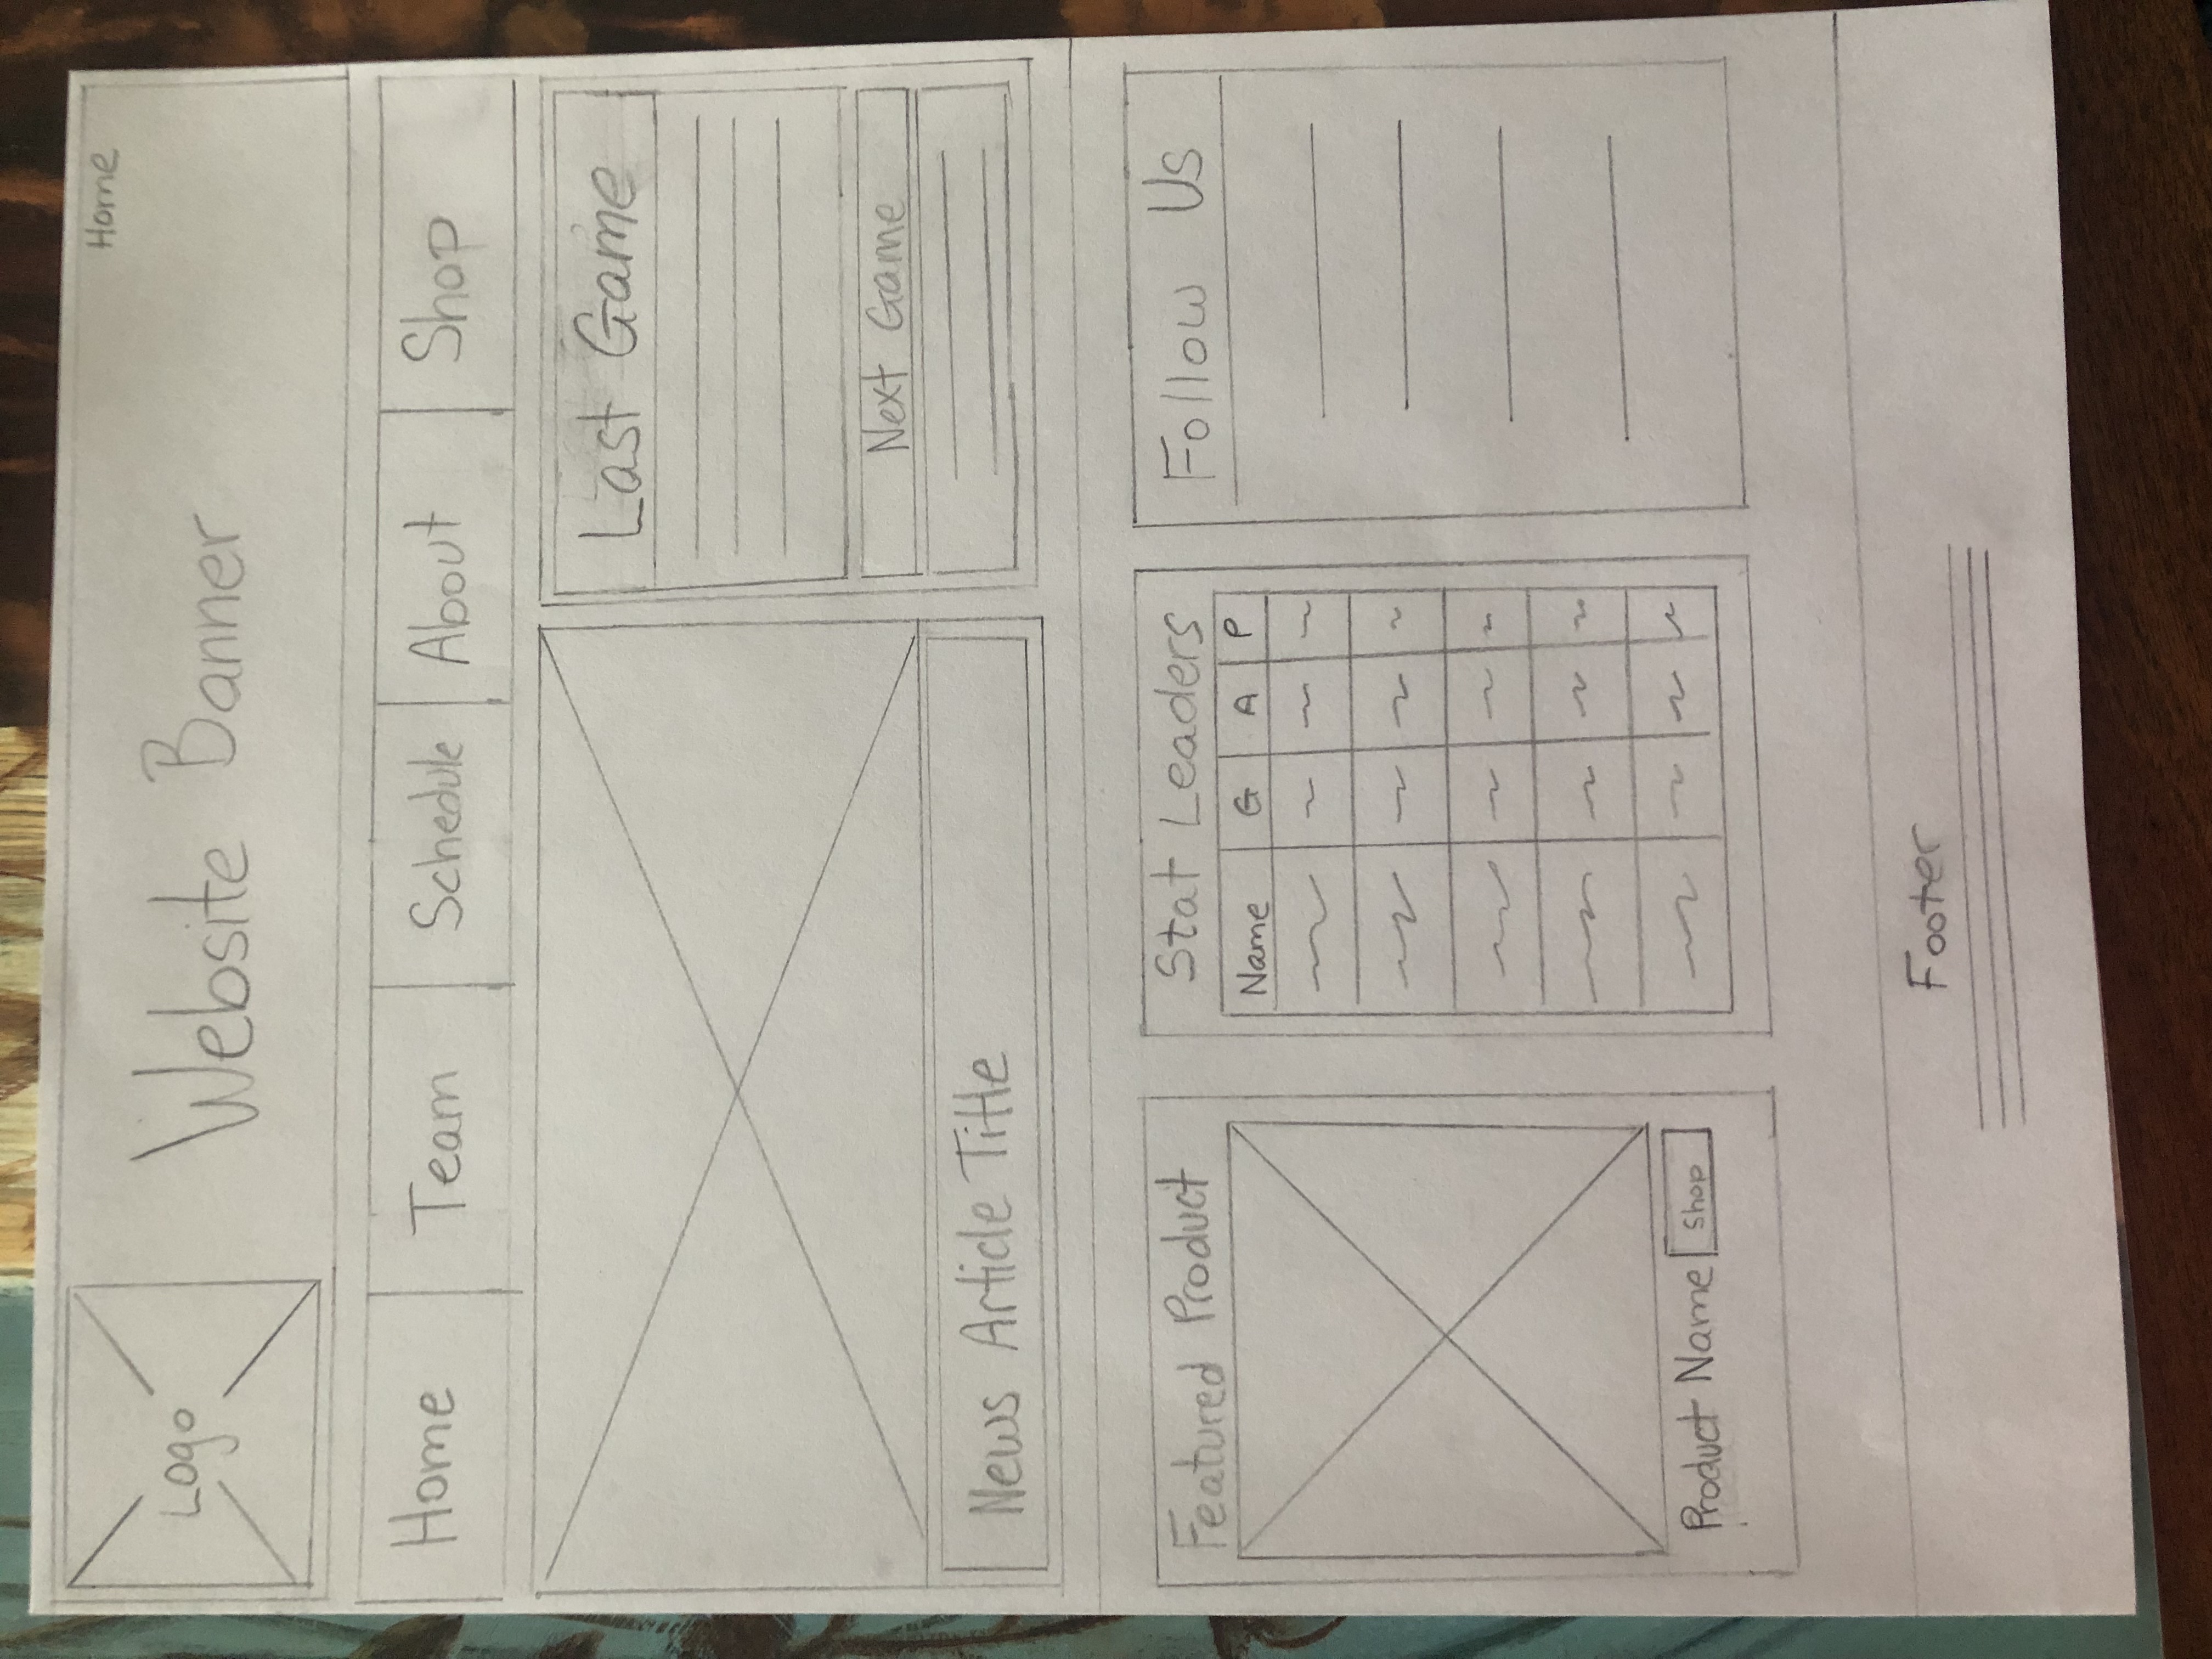 Home
Logo
Website Banner
Home Team Schedule About Shop
Last Game
Next Game
News Article Title
Featured Product
Product Name Shop
Stat Leaders
Name G A P
Follow Us
Footer